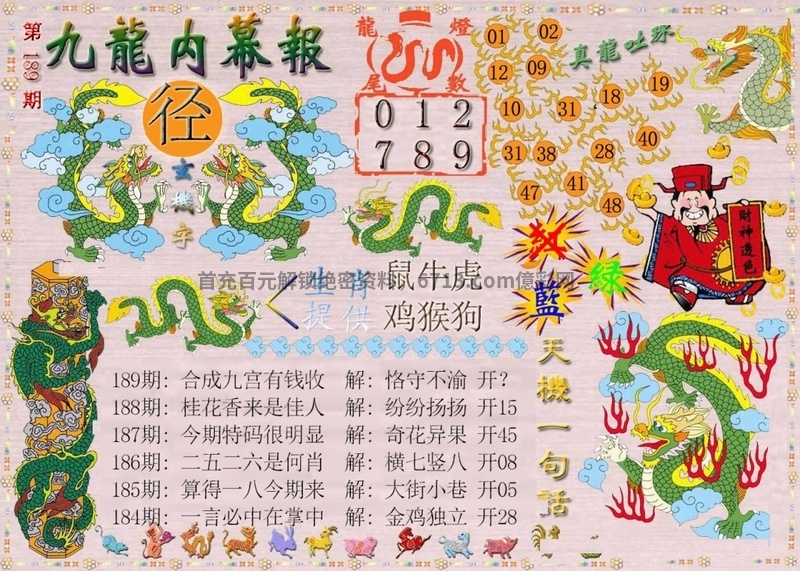 第189期
九龍内幕報
径
玄機字
龍燈
尾數
0 1 2
7 8 9
真龍吐珠
01 02
12 09
10 31 18 19
31 38 28 40
47 41 48
財神透色
红 绿
藍
生肖
提供
鼠牛虎
鸡猴狗
天機一句話
189期: 合成九宫有钱收 解: 恪守不渝 开?
188期: 桂花香来是佳人 解: 纷纷扬扬 开15
187期: 今期特码很明显 解: 奇花异果 开45
186期: 二五二六是何肖 解: 横七竖八 开08
185期: 算得一八今期来 解: 大街小巷 开05
184期: 一言必中在掌中 解: 金鸡独立 开28